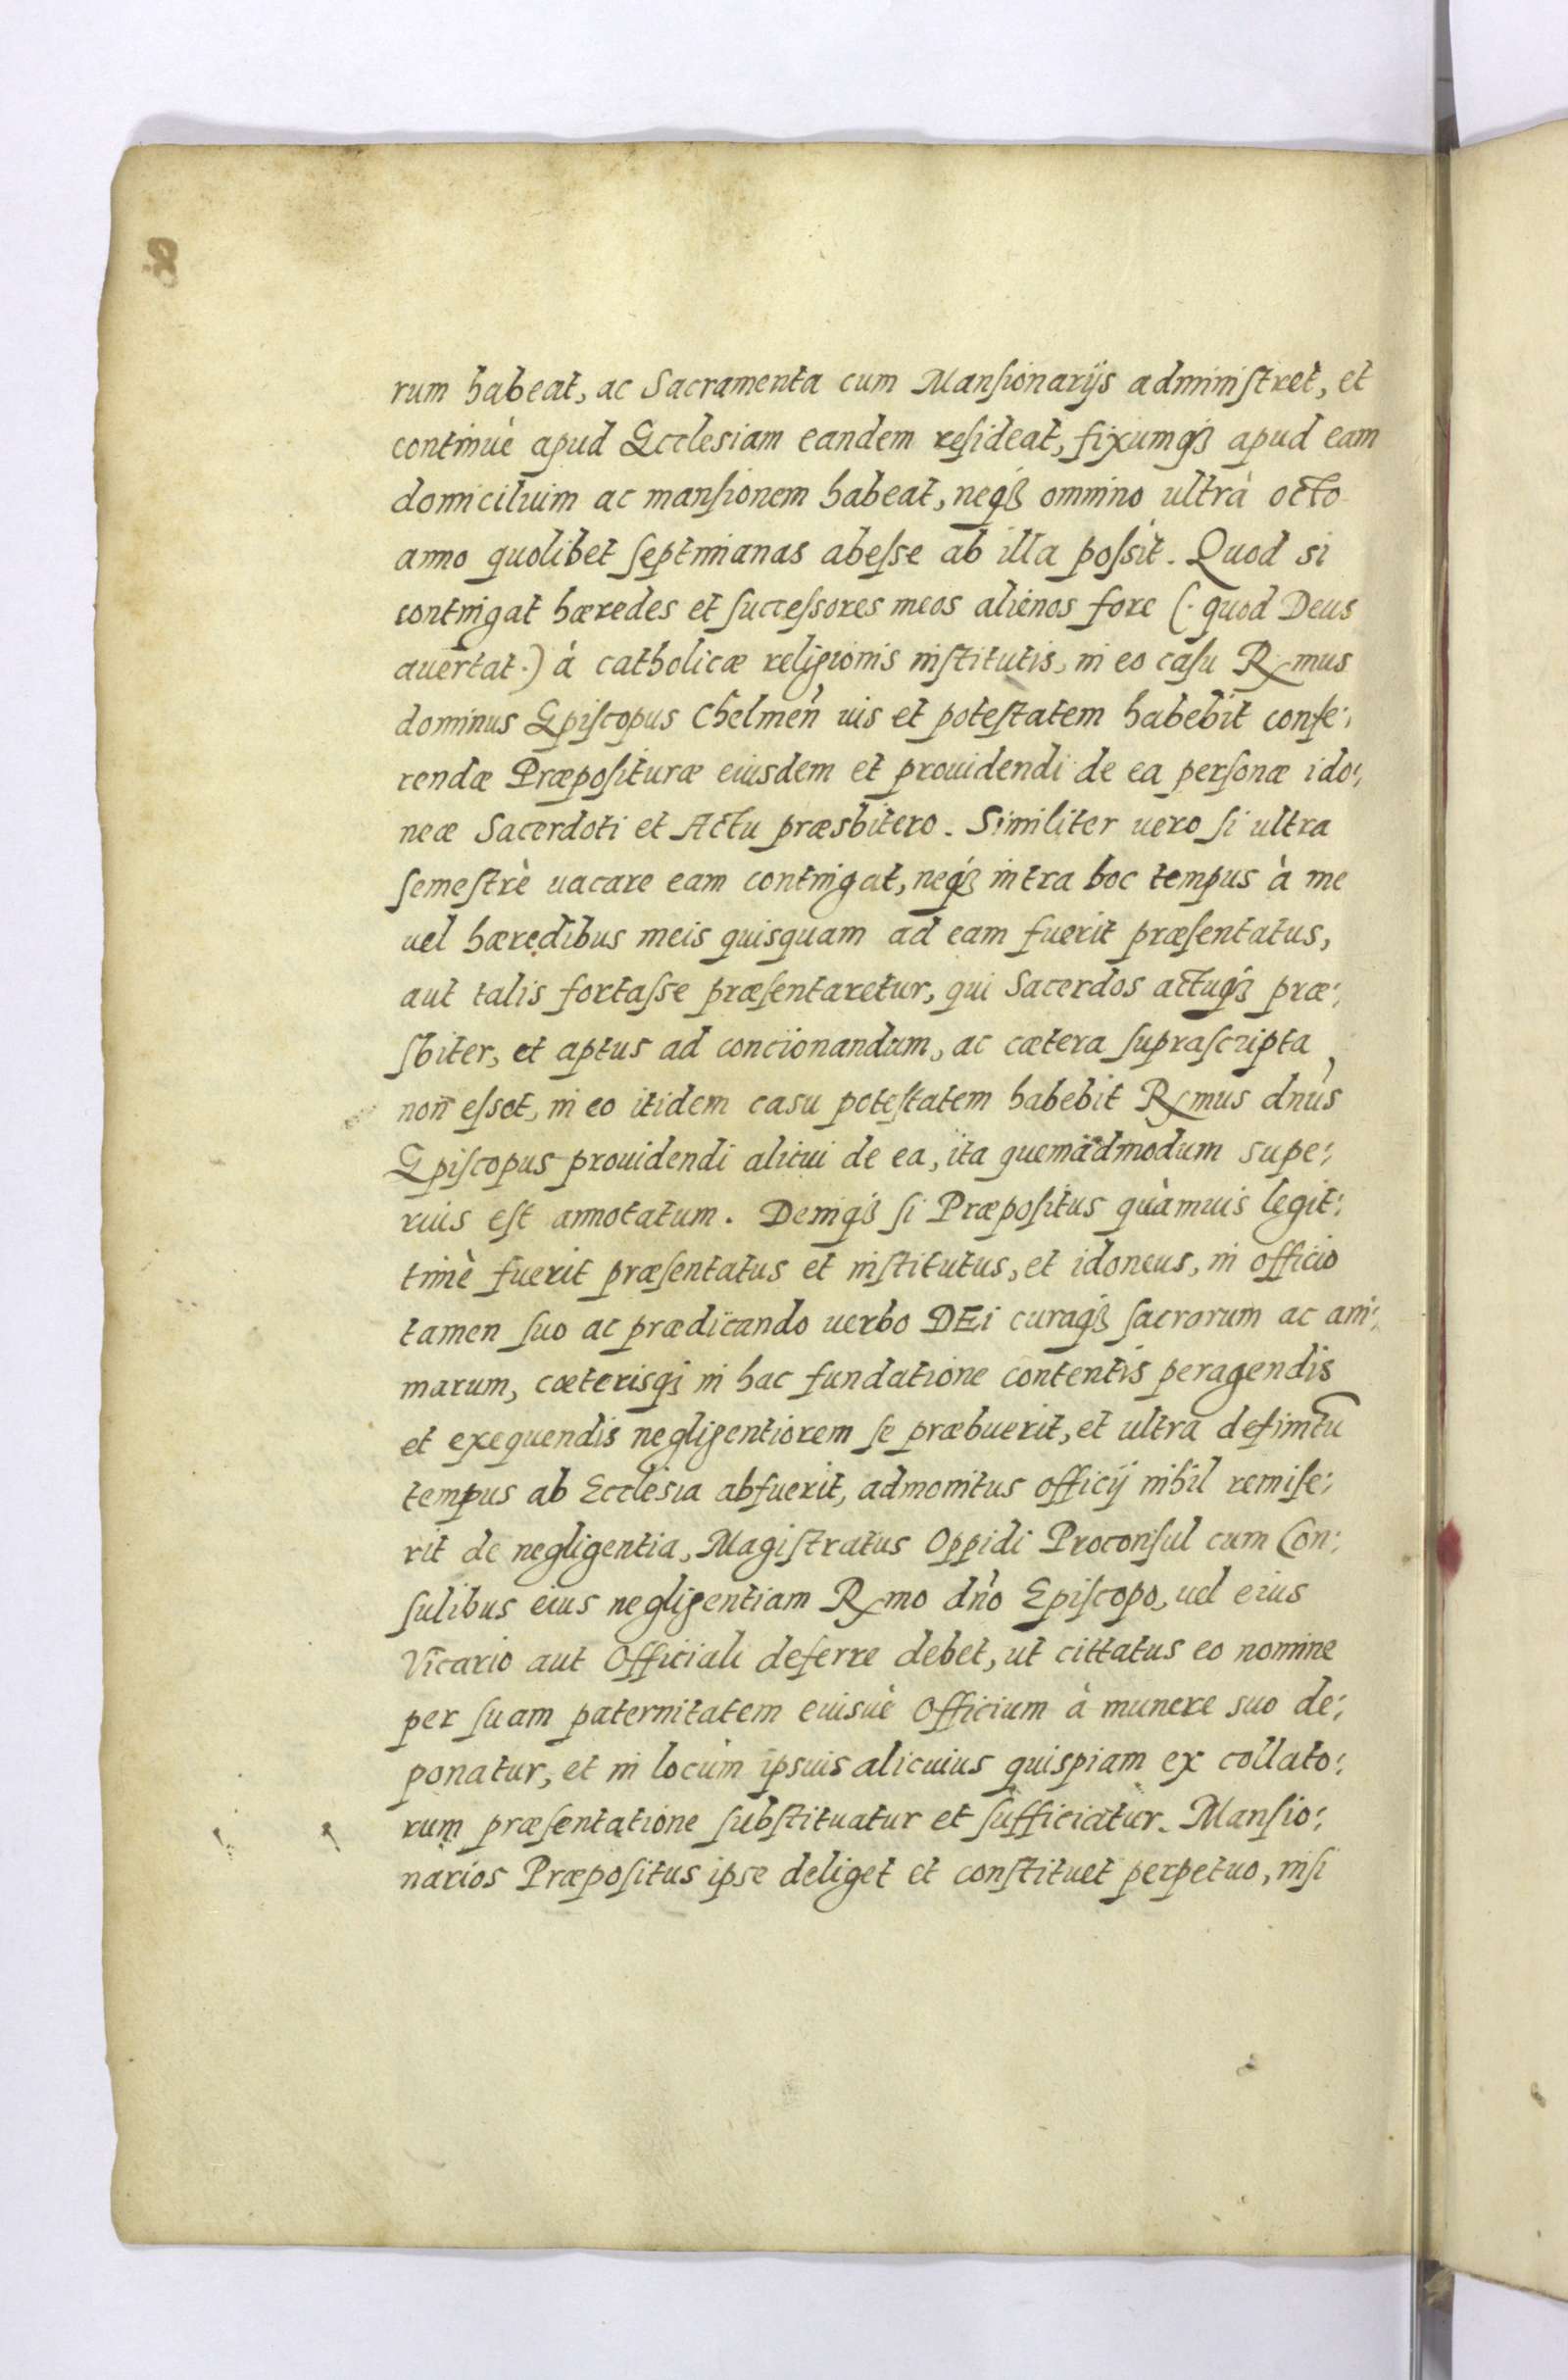 rum habeat, ac Sacramenta cum Mansionarijs administret, et
continuè apud Ecclesiam eandem resideat, fixumq́ȝ apud eam
domicilium ac mansionem habeat, neq́ȝ omnino ultrà octo
anno quolibet septimanas abesse ab illa possit. Quod si
contingat hæredes et successores meos alienos fore (· quod Deus
auertat ·) à catholicæ religionis institutis, in eo casu Rmus
dominus Episcopus Chelmeñ uis et potestatem habebit confe:
rendæ Præposituræ eiusdem et prouidendi de ea personæ ido:
neæ Sacerdoti et Actu præsbitero. Similiter uero si ultra
semestrè uacare eam contingat, neq́ȝ intra hoc tempus à me
uel hæredibus meis quisquam ad eam fuerit præsentatus,
aut talis fortasse præsentaretur, qui Sacerdos actuq́ȝ præ:
sbiter, et aptus ad concionandum, ac cætera suprascripta
non esset, in eo itidem casu potestatem habebit Rmus dnus
Episcopus prouidendi alicui de ea, ita quemàdmodum supe:
rius est annotatum. Deniq́ȝ si Præpositus quàmuis legit:
timè fuerit præsentatus et institutus, et idoneus, in officio
tamen suo ac prædicando uerbo DEi curaq́ȝ sacrorum ac ani:
marum, cæterisqȝ in hac fundatione contentis peragendis
et exequendis negligentiorem se præbuerit, et ultra definitū
tempus ab Ecclesia abfuerit, admonitus officij nihil remise:
rit de negligentia, Magistratus Oppidi Proconsul cum Con:
sulibus eius negligentiam Rmo dño Episcopo, uel eius
Vicario aut Officiali deferre debet, ut cittatus eo nomine
per suam paternitatem eiusuè Officium à munere suo de:
ponatur, et in locum ipsius alicuius quispiam ex collato:
rum præsentatione substituatur et sufficiatur. Mansio:
narios Præpositus ipse deliget et constituet perpetuo, nisi